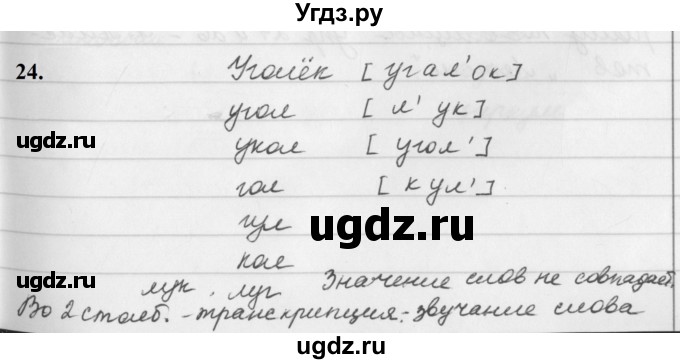 Угдз.ру
24. Уголёк [угал'ок]
угол [л'ук]
ugdz.ru
укол [угол']
ugdz.ru
гол [кул']
ugdz.ru
гул
кол
ugdz.ru
лук, луг Значение слов не совпадает.
ugdz.ru
Во 2 столб. - транскрипция - звучание слова